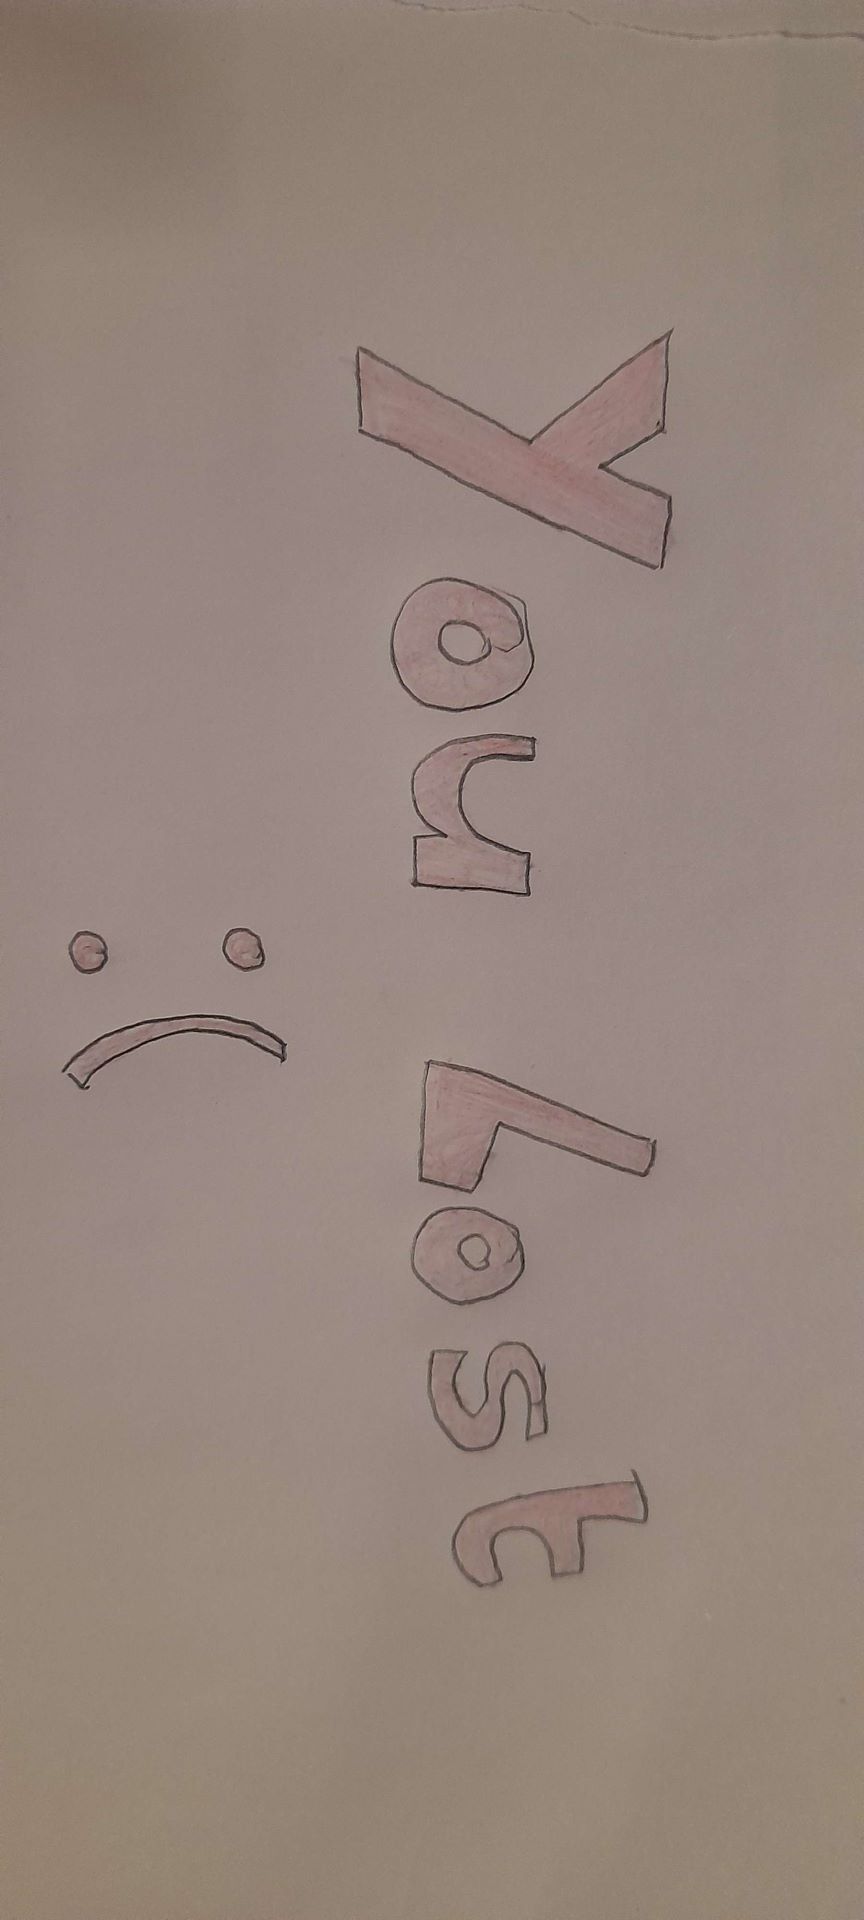 You Lost
:(